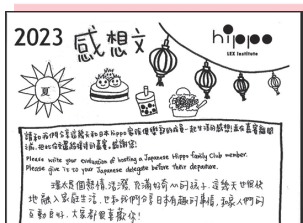 2023 感想文
hippo
LEX Institute
夏
請和我們分享這幾天和日本Hippo家族俱樂部的成員一起生活的感想!並在嘉賓離開
前,把此份表單送給接待的嘉賓,感謝您!
Please write your evaluation of hosting a Japanese Hippo Family Club member.
Please give it to your Japanese delegate before their departure.
個熱情、活潑、充滿好奇心的孩子,這幾天她很快
地融入家庭生活,也和我們分享日本有趣的事情,和家人們的
互動良好,大家都很喜歡你!